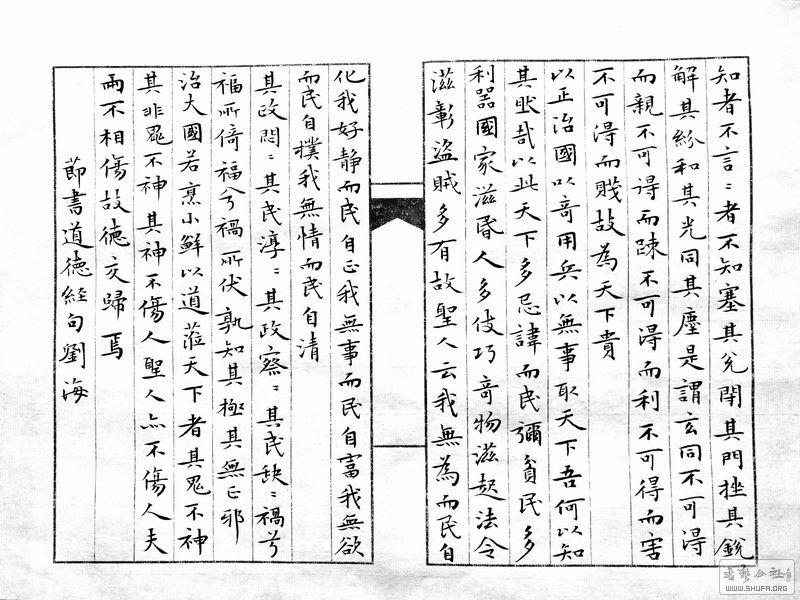 知者不言〻者不知塞其兌閉其門挫其銳
解其紛和其光同其塵是謂玄同不可得
而親不可得而踈不可得而利不可得而害
不可得而賤故為天下貴
以正治國以奇用兵以無事取天下吾何以知
其然哉以此天下多忌諱而民彌貧民多
利器國家滋昏人多伎巧奇物滋起法令
滋彰盜賊多有故聖人云我無為而民自
化我好静而民自正我無事而民自富我無欲
而民自樸我無情而民自清
其政悶〻其民淳〻其政察〻其民缺〻禍兮
福所倚福兮禍所伏孰知其極其無正邪
治大國若烹小鮮以道蒞天下者其鬼不神
其非鬼不神其神不傷人聖人亦不傷人夫
兩不相傷故德交歸焉
節書道德経句劉海
書藝公社
WWW.SHUFA.ORG